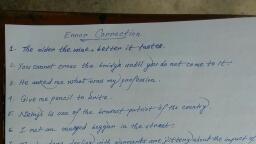 Error Correction
1- The older the wine, better it tastes.
2. You cannot cross the bridge until you do not come to it.
3. He asked me what was my profession.
4. Give me pencil to write.
5. is one of the bravest patriot of the country
6. I met an maged beggar in the street.